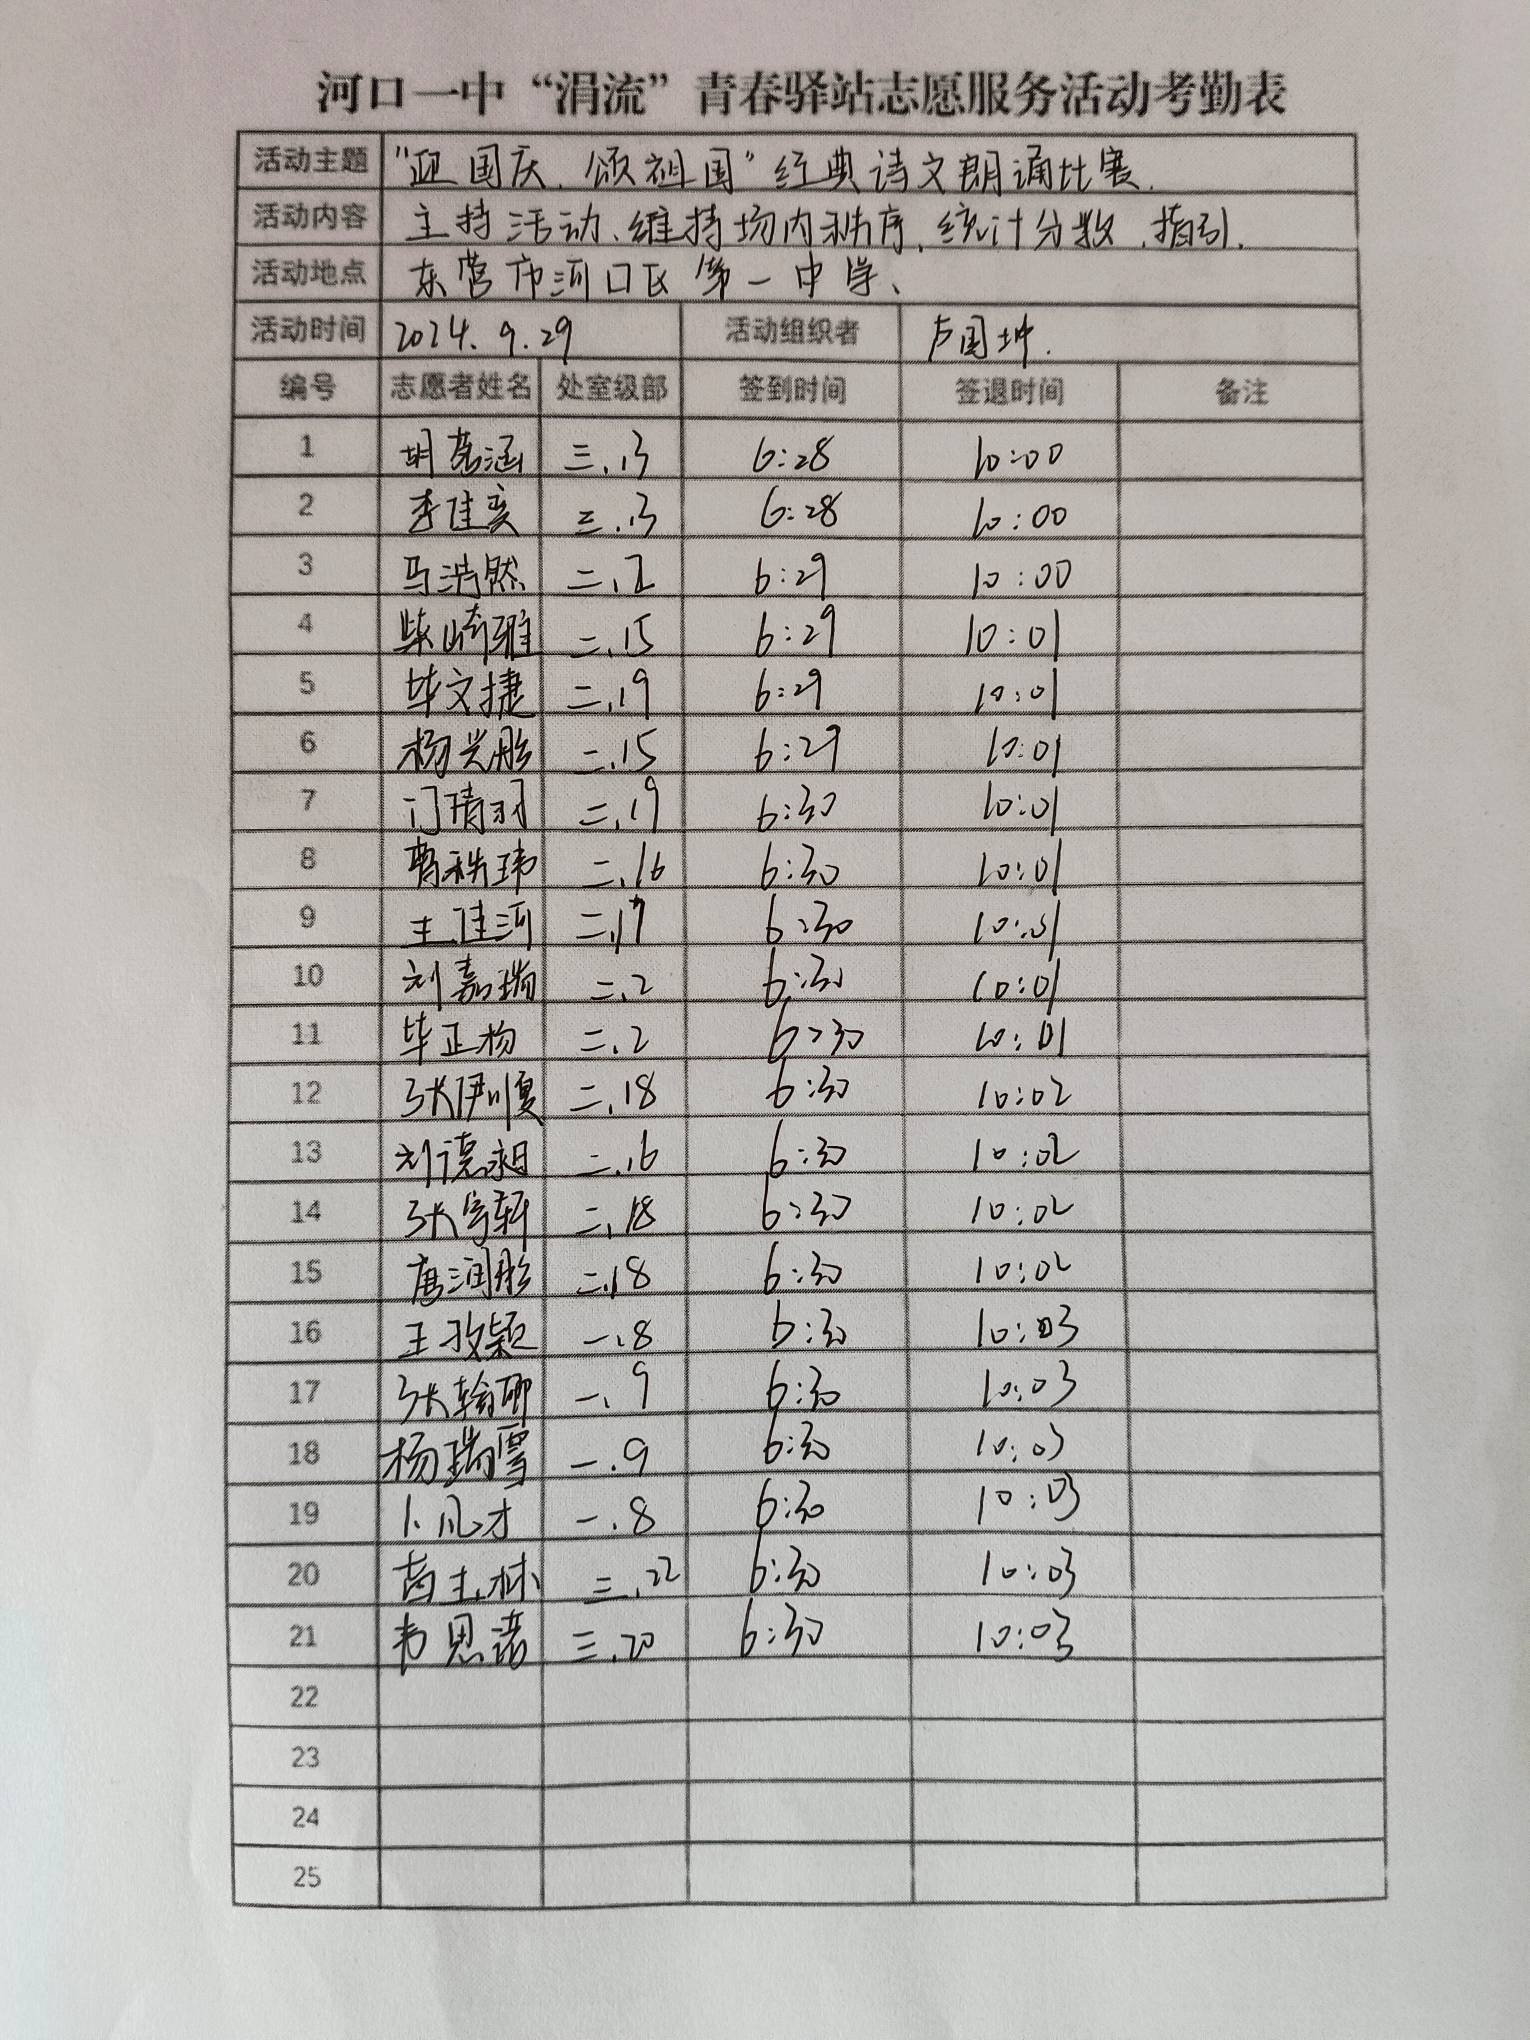 河口一中“涓流”青春驿站志愿服务活动考勤表
活动主题 “迎国庆、颂祖国”经典诗文朗诵比赛.
活动内容 主持活动、维持场内秩序、统计分数、指引.
活动地点 东营市河口区第一中学、
活动时间 2024.9.29 活动组织者 卢国坤.
编号 志愿者姓名 处室级部 签到时间 签退时间 备注
1 胡茗涵 三.13 6:28 10:00
2 李佳奕 三.13 6:28 10:00
3 马浩然 二.12 6:29 10:00
4 柴崎雅 二.15 6:29 10:01
5 毕文捷 二.19 6:29 10:01
6 杨兴彤 二.15 6:29 10:01
7 门靖羽 二.19 6:30 10:01
8 曹秩玮 二.16 6:30 10:01
9 王佳河 二.17 6:30 10:01
10 刘嘉瑞 二.2 6:30 10:01
11 毕正杨 二.2 6:30 10:01
12 张伊顺 二.18 6:30 10:02
13 刘德昶 二.16 6:30 10:02
14 张宇轩 二.18 6:30 10:02
15 唐润彤 二.18 6:30 10:02
16 王孜颖 一.8 6:30 10:03
17 张翰卿 一.9 6:30 10:03
18 杨瑞雪 一.9 6:30 10:03
19 卜凡才 一.8 6:30 10:03
20 苗玉林 三.22 6:30 10:03
21 韦思诺 三.20 6:30 10:03
22
23
24
25